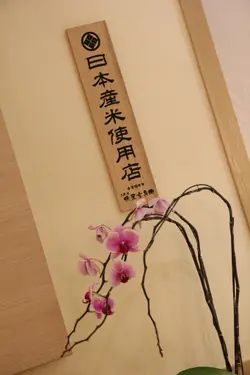 日本産米使用店